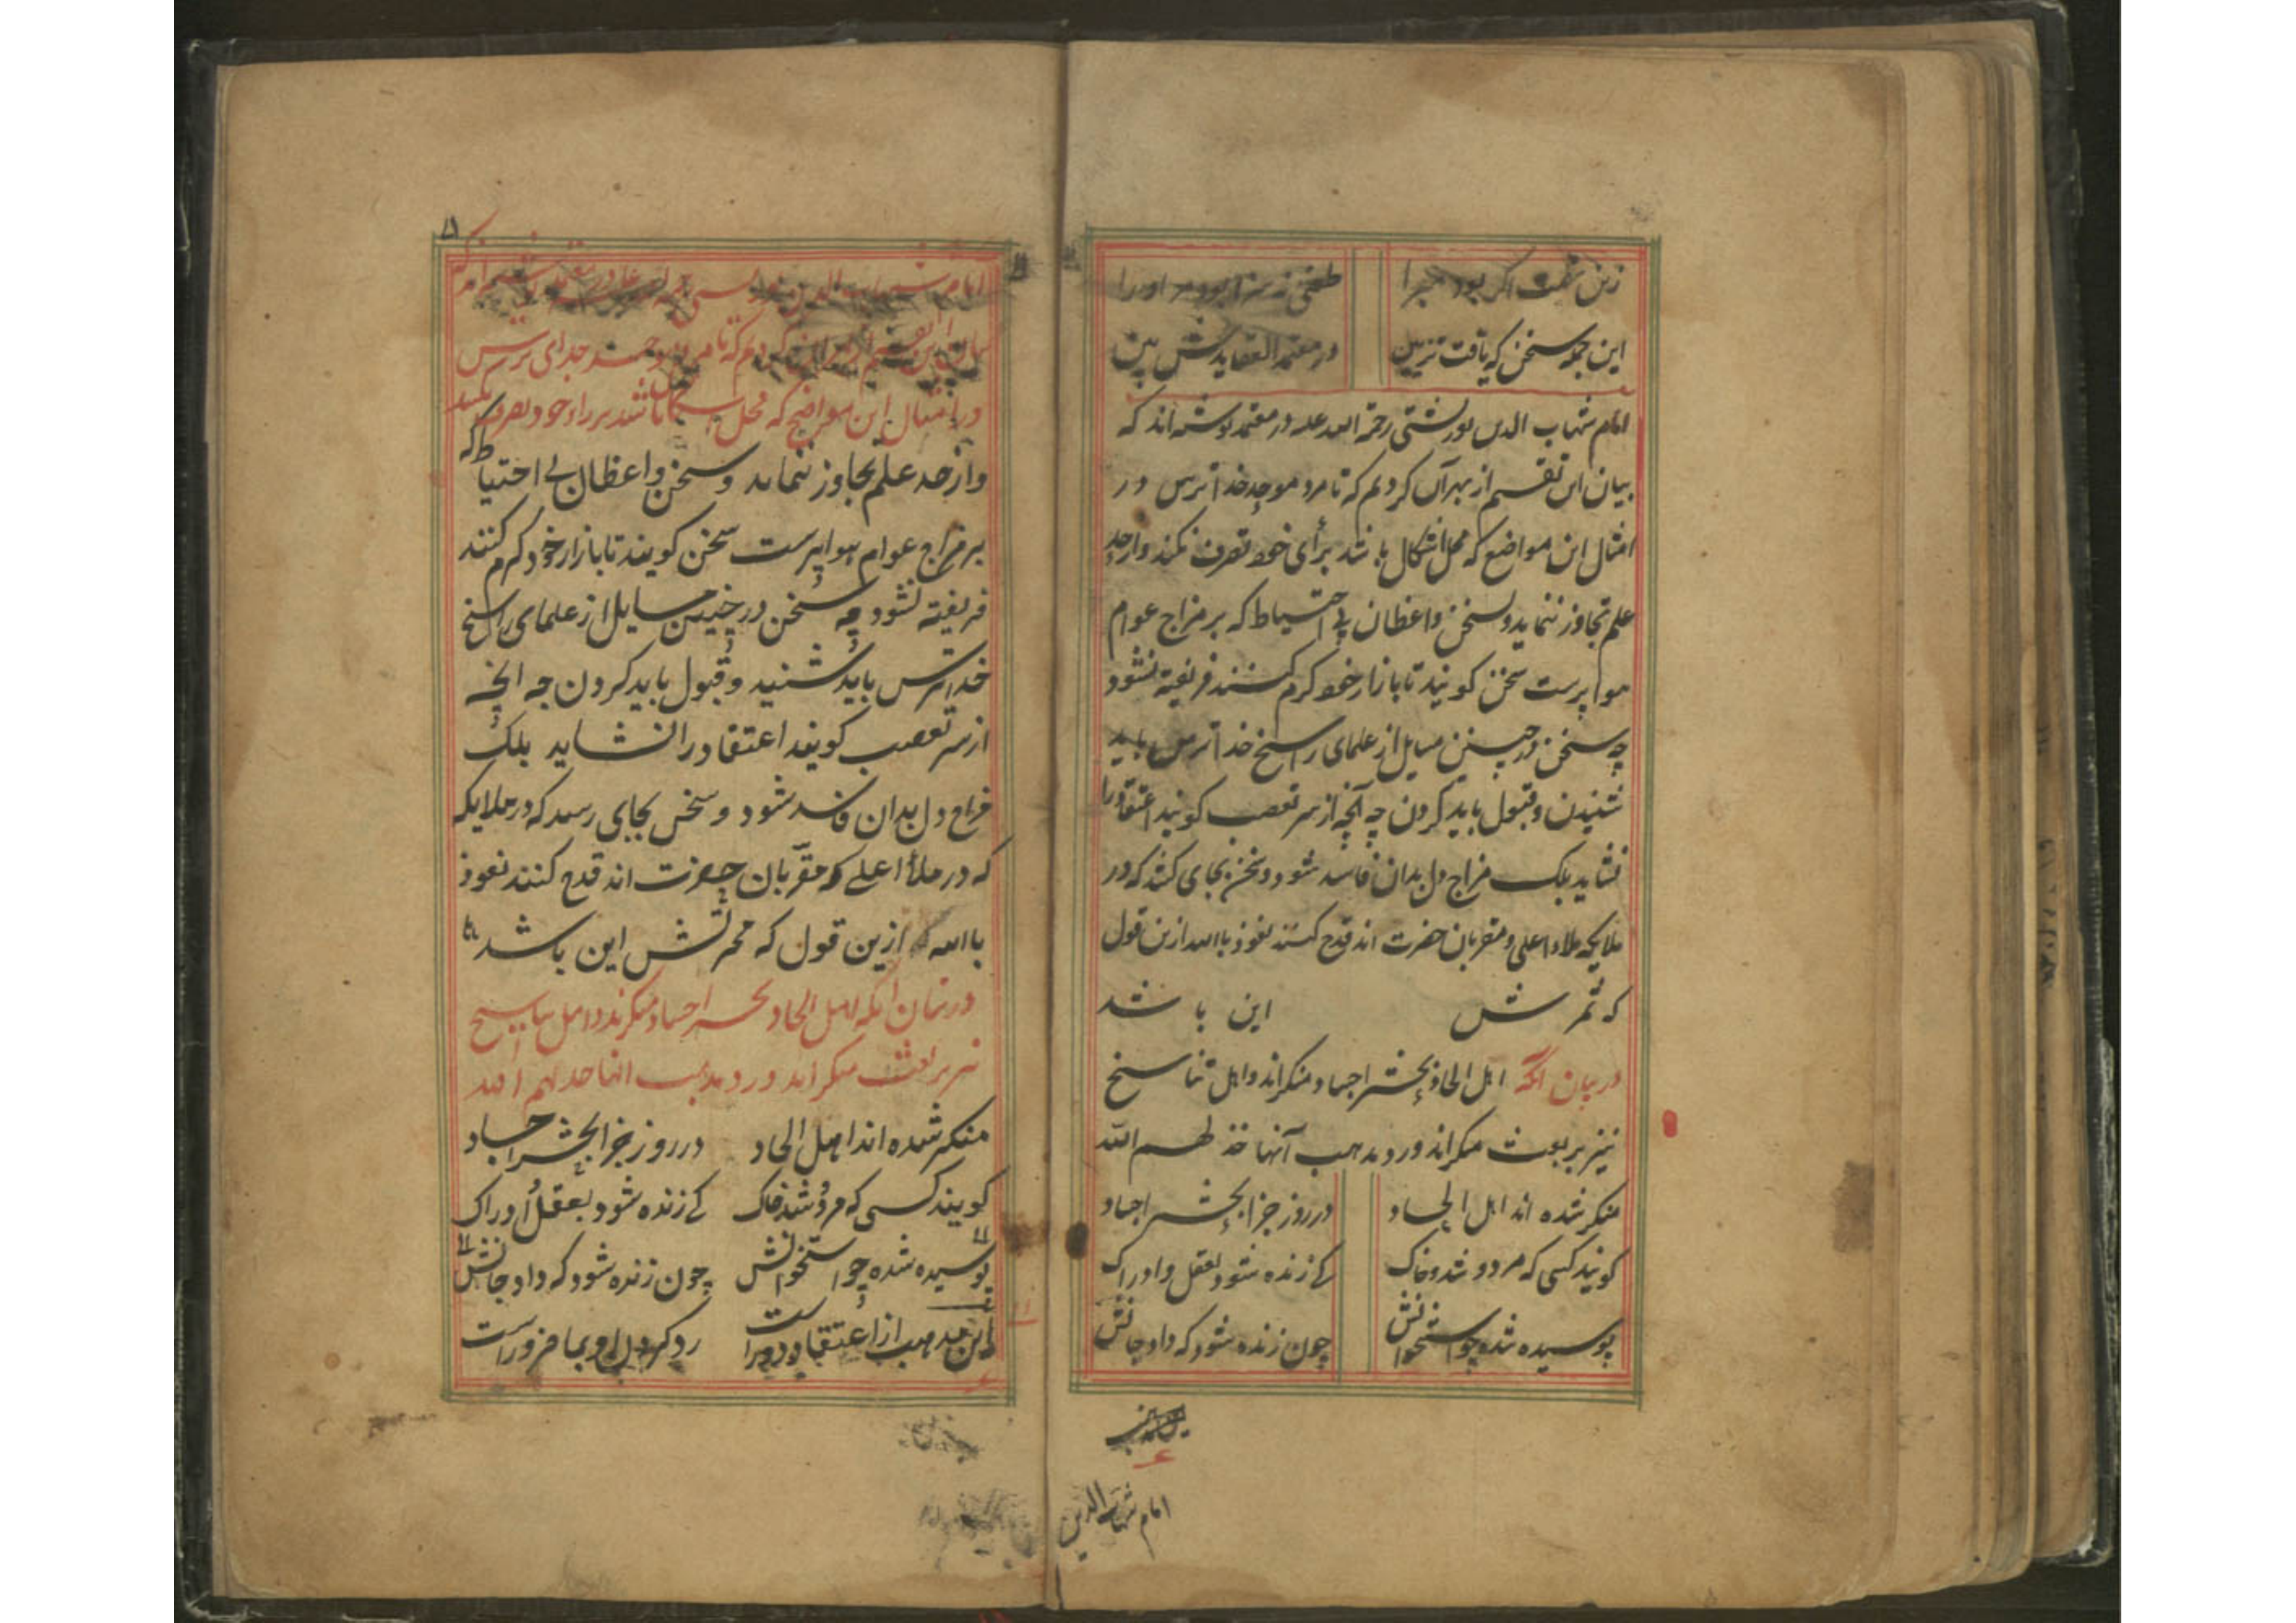 زین گفت اگر بود مبرا
طعنی نرسد ابو مر او را
این جمله سخن که یافت تزیین
در معتمد العقایدش بین
امام شهاب الدین تورپشتی رحمة الله علیه در معتمد نوشته اند که
بیان این تقسیم از بهر آن کردیم که تا مرد موحد خدا ترس در
امثال این مواضع که محل اشکال باشد برأی خود تصرف نکند و از حد
علم تجاوز ننماید و بسخن واعظان بی احتیاط که بر مزاج عوام
هوا پرست سخن گویند تا بازار خود گرم کنند فریفته نشود
چه سخن در چنین مسایل از علمای راسخ خدا ترس باید
شنیدن و قبول باید کردن چه آنچه از سر تعصب گویند اعتقاد را
نشاید بلک مزاج دل بدان فاسد شود و سخن بجای کشد که در
ملایکه ملاء اعلی و مقربان حضرت اند قدح کنند نعوذ باالله ازین قول
که ثمرتش این باشد
در بیان آنکه اهل الحاد بحشر اجساد منکراند و اهل تناسخ
نیز بر بعث منکراند و رد مذهب آنها خذلهم الله
منکر شده اند اهل الحاد
در روز جزا بحشر اجساد
گویند کسی که مرد و شد خاک
کے زنده شود بعقل و ادراک
بوسیده شده چو استخوانش
چون زنده شود که داد جانش
امام شهاب الدین
بیان این تقسیم از بهر آن کردیم که تا مرد موحد خدای ترس
در امثال این مواضع که محل اشکال باشد برراء خود تصرف نکند
و از حد علم تجاوز ننماید و سخن واعظان بے احتیاط که
بر مزاج عوام هوا پرست سخن گویند تا بازار خود گرم کنند
فریفته نشود چه سخن در چنین مسایل از علمای راسخ
خدا ترس باید شنید و قبول باید کردن چه آنچه
از سر تعصب گویند اعتقاد را نشاید بلک
مزاج دل بدان فاسد شود و سخن بجای رسد که در ملایکه
که در ملأ اعلے که مقربان حضرت اند قدح کنند نعوذ
باالله ازین قول که ثمرتش این باشد
در بیان آنکه اهل الحاد بحشر اجساد منکرند و اهل تناسخ
نیز بر بعث منکراند و رد مذهب انها خذلهم الله
منکر شده اند اهل الحاد
در روز جزا بحشر اجساد
گویند کسی که مرد و شد خاک
کے زنده شود بعقل و ادراک
بوسیده شده چو استخوانش
چون زنده شود که داد جانش
این مذهب از اعتقاد دور است
رد کردن او بما ضرور است